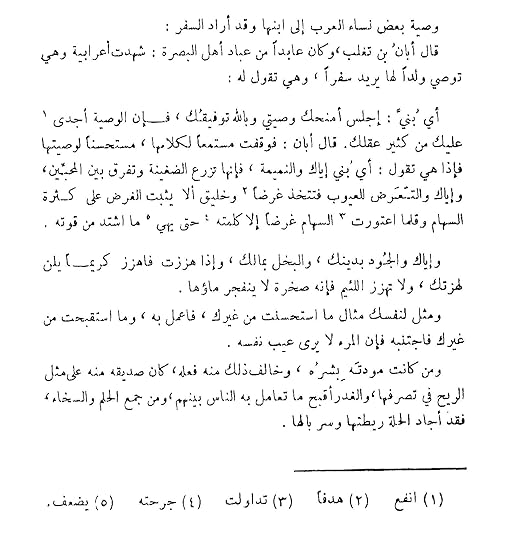 وصية بعض نساء العرب إلى ابنها وقد أراد السفر :
قال أبانُ بن تغلب،وكان عابداً من عباد أهل البصرة : شهدت أعرابية وهي
توصي ولداً لها يريد سفراً ، وهي تقول له :
أي بُنيَّ : إجلس أمنحك وصيتي وبالله توفيقك ، فـإن الوصية أجدى ١
عليك من كثير عقلك. قال أبان : فوقفت مستمعاً لكلامها ، مستحسناً لوصيتها
فإذا هي تقول : أي بُني إياك والنميمة ، فإنها تزرع الضغينة وتفرق بين المحبّين،
وإياك والتّعَرض للعيوب فتتخذ غرضاً ٢ وخليق ألا يثبت الغرض على كثرة
السهام وقلما اعتورت ٣ السهام غرضاً إلا كلمته ٤ حتى يهي ٥ ما اشتد من قوته .
وإياك والجُود بدينك ، والبخل بمالك ، وإذا هززت فاهزز كريمـاً يلن
لهزتك ، ولا تهزز اللئيم فإنه صخرة لا ينفجر ماؤها .
ومثل لنفسك مثال ما استحسنت من غيرك ، فاعمل به ، وما استقبحت من
غيرك فاجتنبه فإن المرء لا يرى عيب نفسه .
ومن كانت مودته بِشرُه ، وخالف ذلك منه فعله، كان صديقه منه على مثل
الريح في تصرفها، والغدر أقبح ما تعامل به الناس بينهم، ومن جمع الحلم والسخاء،
فقد أجاد الحلة ريطتها وسربالها .
(١) انفع (٢) هدفاً (٣) تداولت (٤) جرحته (٥) يضعف.